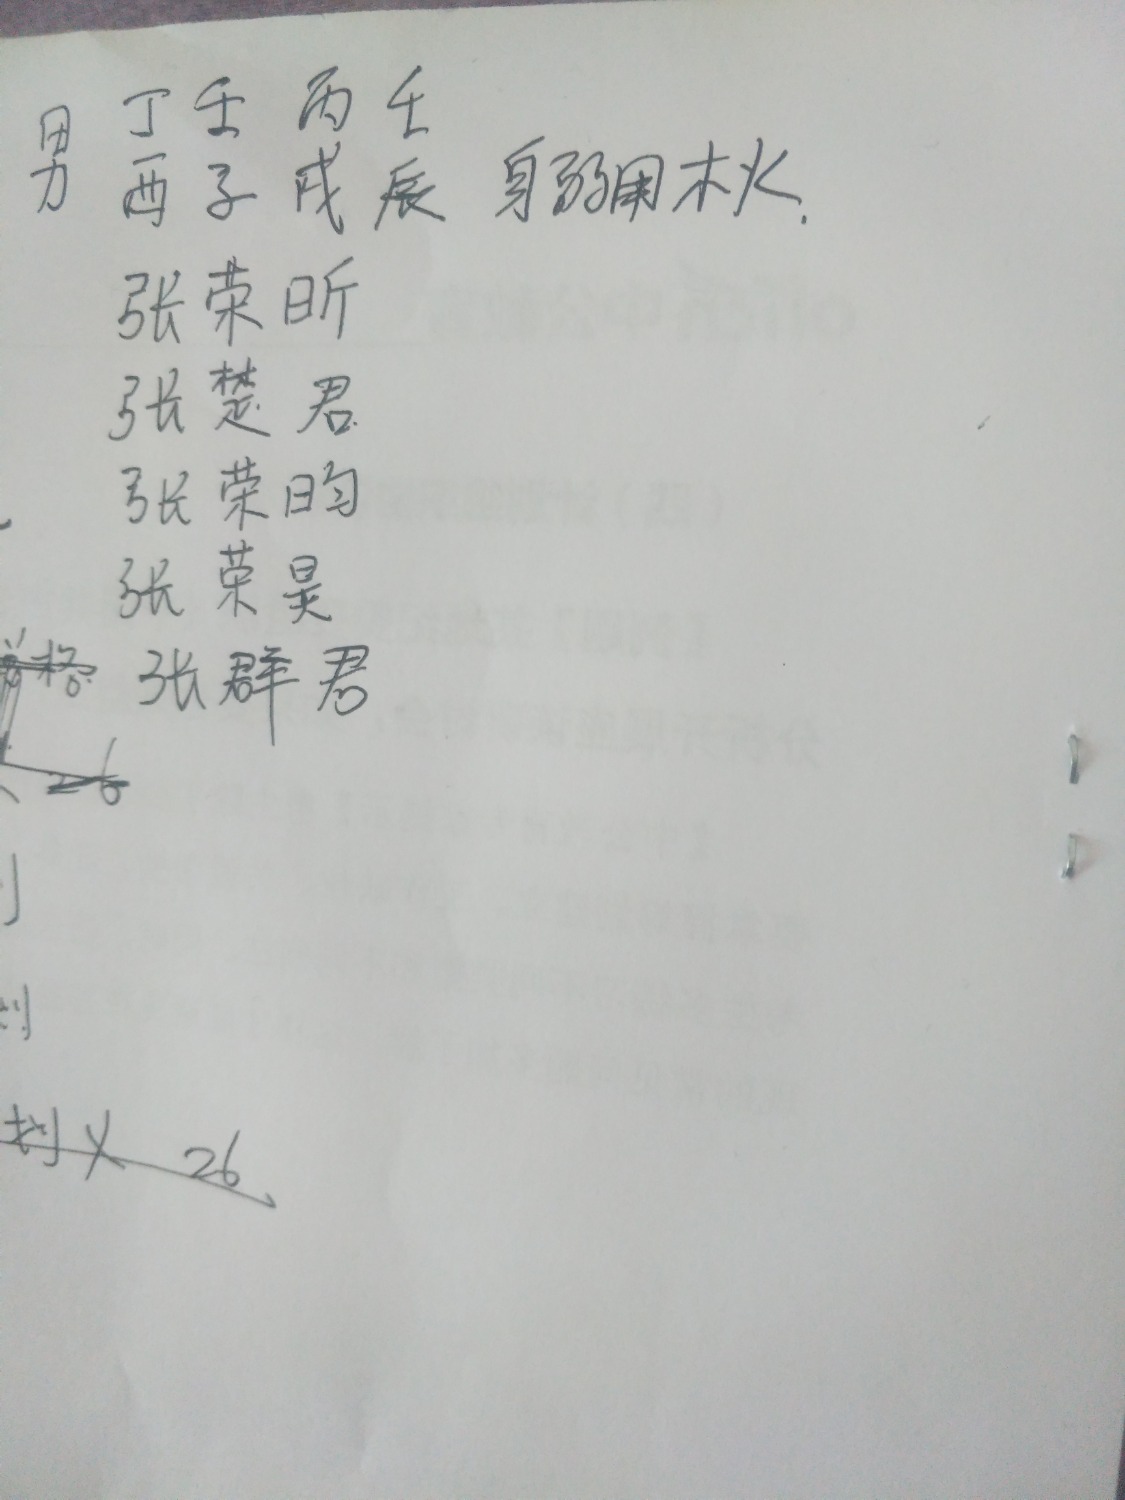 男 丁 壬 丙 壬
酉 子 戌 辰 身弱用木火.
张荣昕
张楚君
张荣昀
张荣昊
格 张群君
26
划义 26